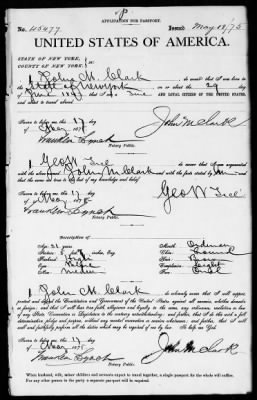 APPLICATION FOR PASSPORT.
No. 45477. Issued May 18/75
UNITED STATES OF AMERICA.
STATE OF NEW YORK,
COUNTY OF NEW YORK,
I John M. Clark do swear that I was born in
State of New York on or about the 29 day
of June and that I am a true AND LOYAL CITIZEN OF THE UNITED STATES,
and about to travel abroad.
Sworn to before me this 17 day
of May 187
John M Clark
Notary Public.
I Geo W do swear that I am acquainted
with the above named John M Clark and with the facts stated by him and
that the same are true to the best of my knowledge and belief.
Sworn to before me this 17 day
of May 187
Geo W
Notary Public.
DESCRIPTION.
Age, years
Mouth, Ordinary
Stature, feet inches, Eng.
Chin, Round
Forehead, High
Hair, Brown
Eyes,
Complexion,
Nose, Medium
Face, Oval
I John M. Clark do solemnly swear that I will support,
protect and defend the Constitution and Government of the United States against all enemies, whether domestic
or foreign; and that I will bear true faith, allegiance and loyalty to the same, any ordinance, resolution or law
of any State Convention or Legislature to the contrary notwithstanding; and further, that I do this with a full
determination, pledge and purpose, without any mental reservation or evasion whatsoever; and further, that I will
well and faithfully perform all the duties which may be required of me by law. So help me God.
Sworn to before me this 17 day
of May 187
John M Clark
Notary Public.
When husband, wife, minor children and servants expect to travel together, a single passport for the whole will suffice.
For any other person in the party a separate passport will be required.